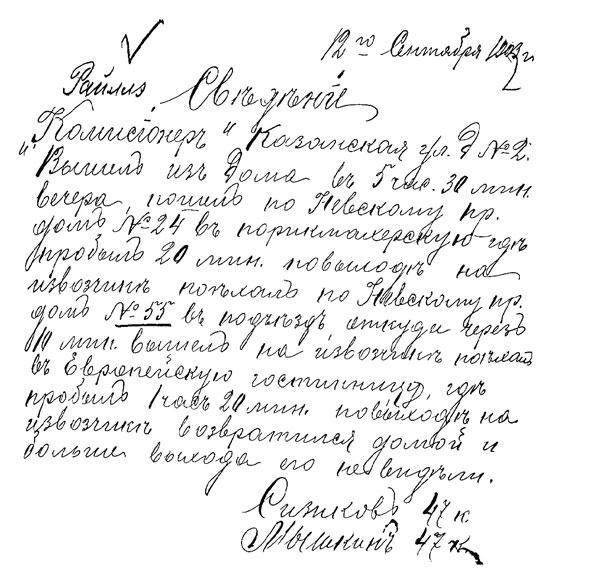 12го Сентября 1903 г.
Райллэ. Свѣдѣнiй
„Комисiонеръ“ Казанская ул. д №2.
Вышелъ изъ дома въ 5 час. 30 мин.
вечера, пошелъ по Невскому пр.
домъ №24 въ порикмахерскую гдѣ
пробылъ 20 мин. повыходѣ на
извозчикѣ поѣхалъ по Невскому пр.
домъ №55 въ подъѣздъ откуда черезъ
10 мин. вышелъ на извозчикѣ поѣхалъ
въ Европейскую гостинницу, гдѣ
пробылъ 1 часъ 20 мин. повыходѣ на
извозчикѣ возвратился домой и
больше выхода его не видѣли.
Сизиковъ 47 к
Мышкинъ 47 к